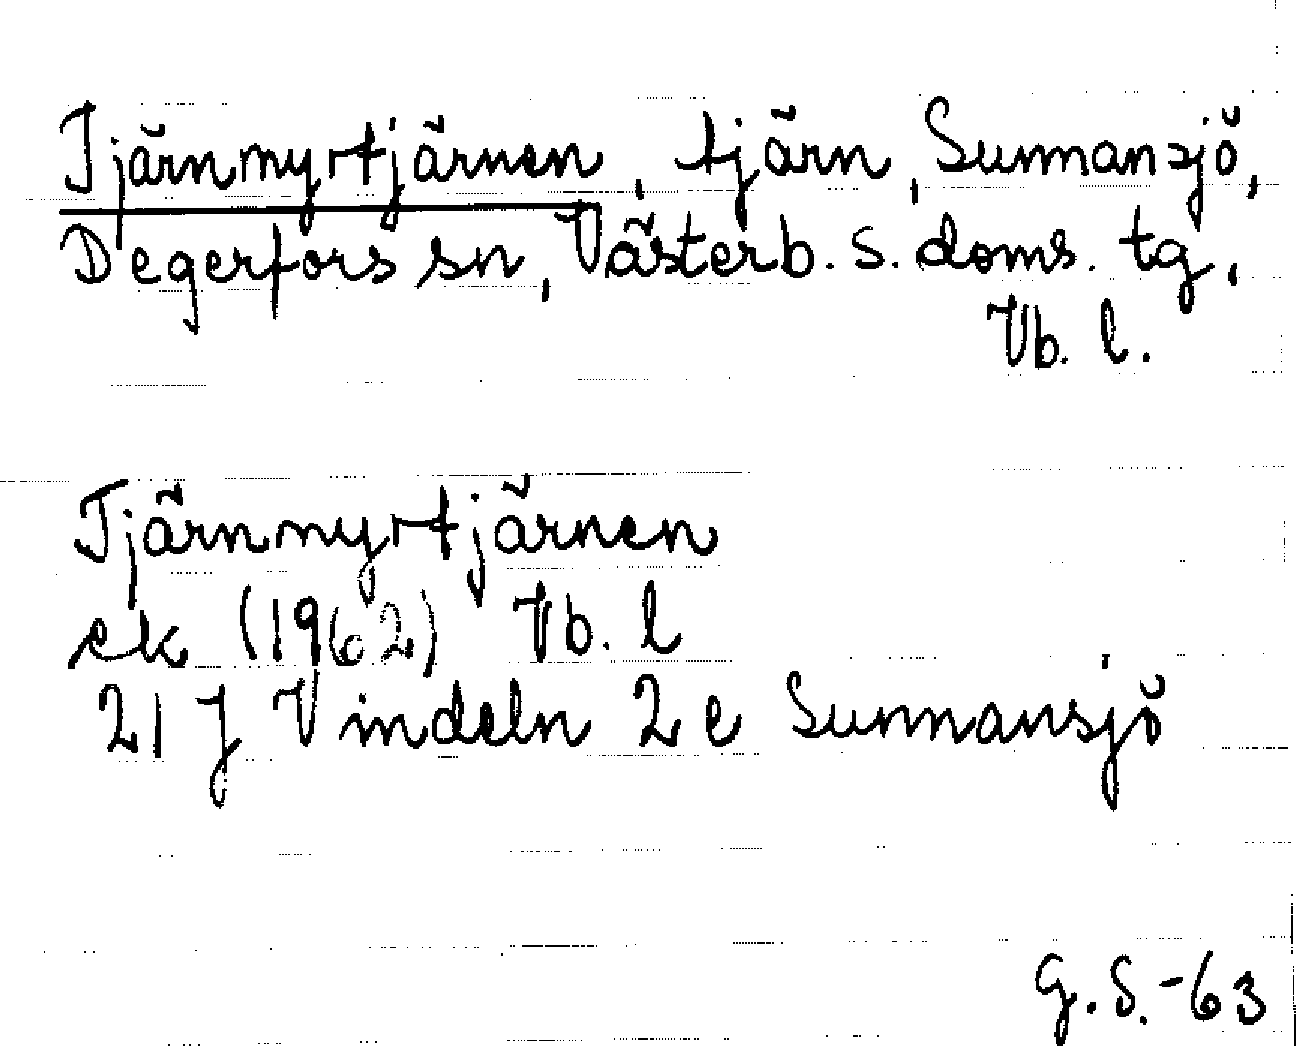 Tjärnmyrtjärnen, tjärn, Sunnansjö,
Degerfors sn, Västerb. s. doms. tg,
Vb. l.
Tjärnmyrtjärnen
ek (1962) Vb. l
21 J Vindeln 2 e Sunnansjö
G.S.-63